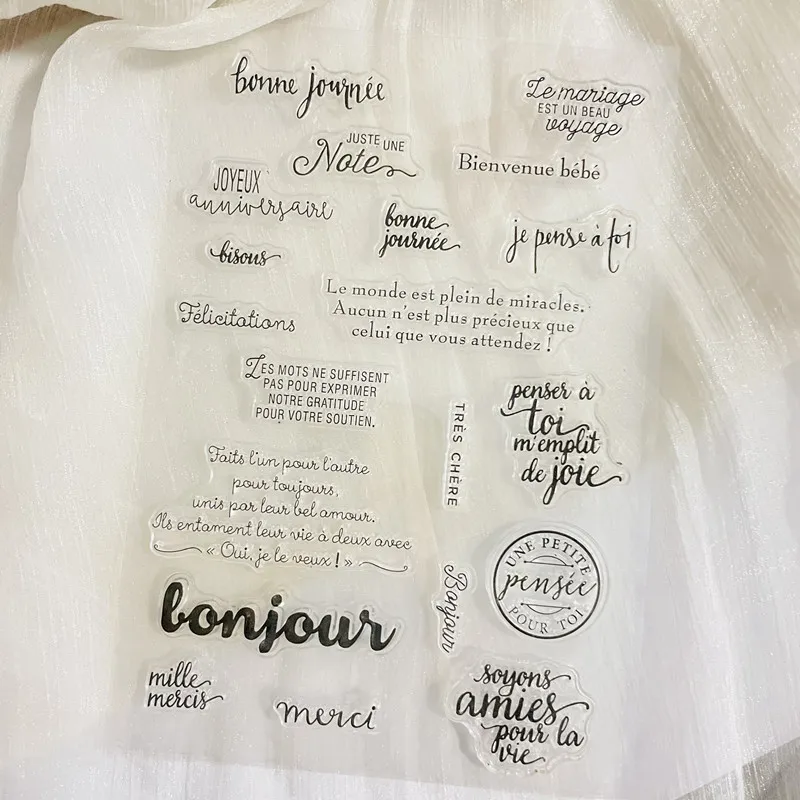 bonne journée
Le mariage
EST UN BEAU
voyage
JUSTE UNE
Note
Bienvenue bébé
JOYEUX
anniversaire
bonne
journée
je pense à toi
bisous
Le monde est plein de miracles.
Aucun n'est plus précieux que
celui que vous attendez !
Félicitations
LES MOTS NE SUFFISENT
PAS POUR EXPRIMER
NOTRE GRATITUDE
POUR VOTRE SOUTIEN.
penser à
toi
m'emplit
de joie
TRÈS CHÈRE
Faits l'un pour l'autre
pour toujours,
unis par leur bel amour.
Ils entament leur vie à deux avec
« Oui, je le veux ! »
UNE PETITE
pensée
POUR TOI
Bonjour
bonjour
mille
mercis
merci
soyons
amies
pour la
vie